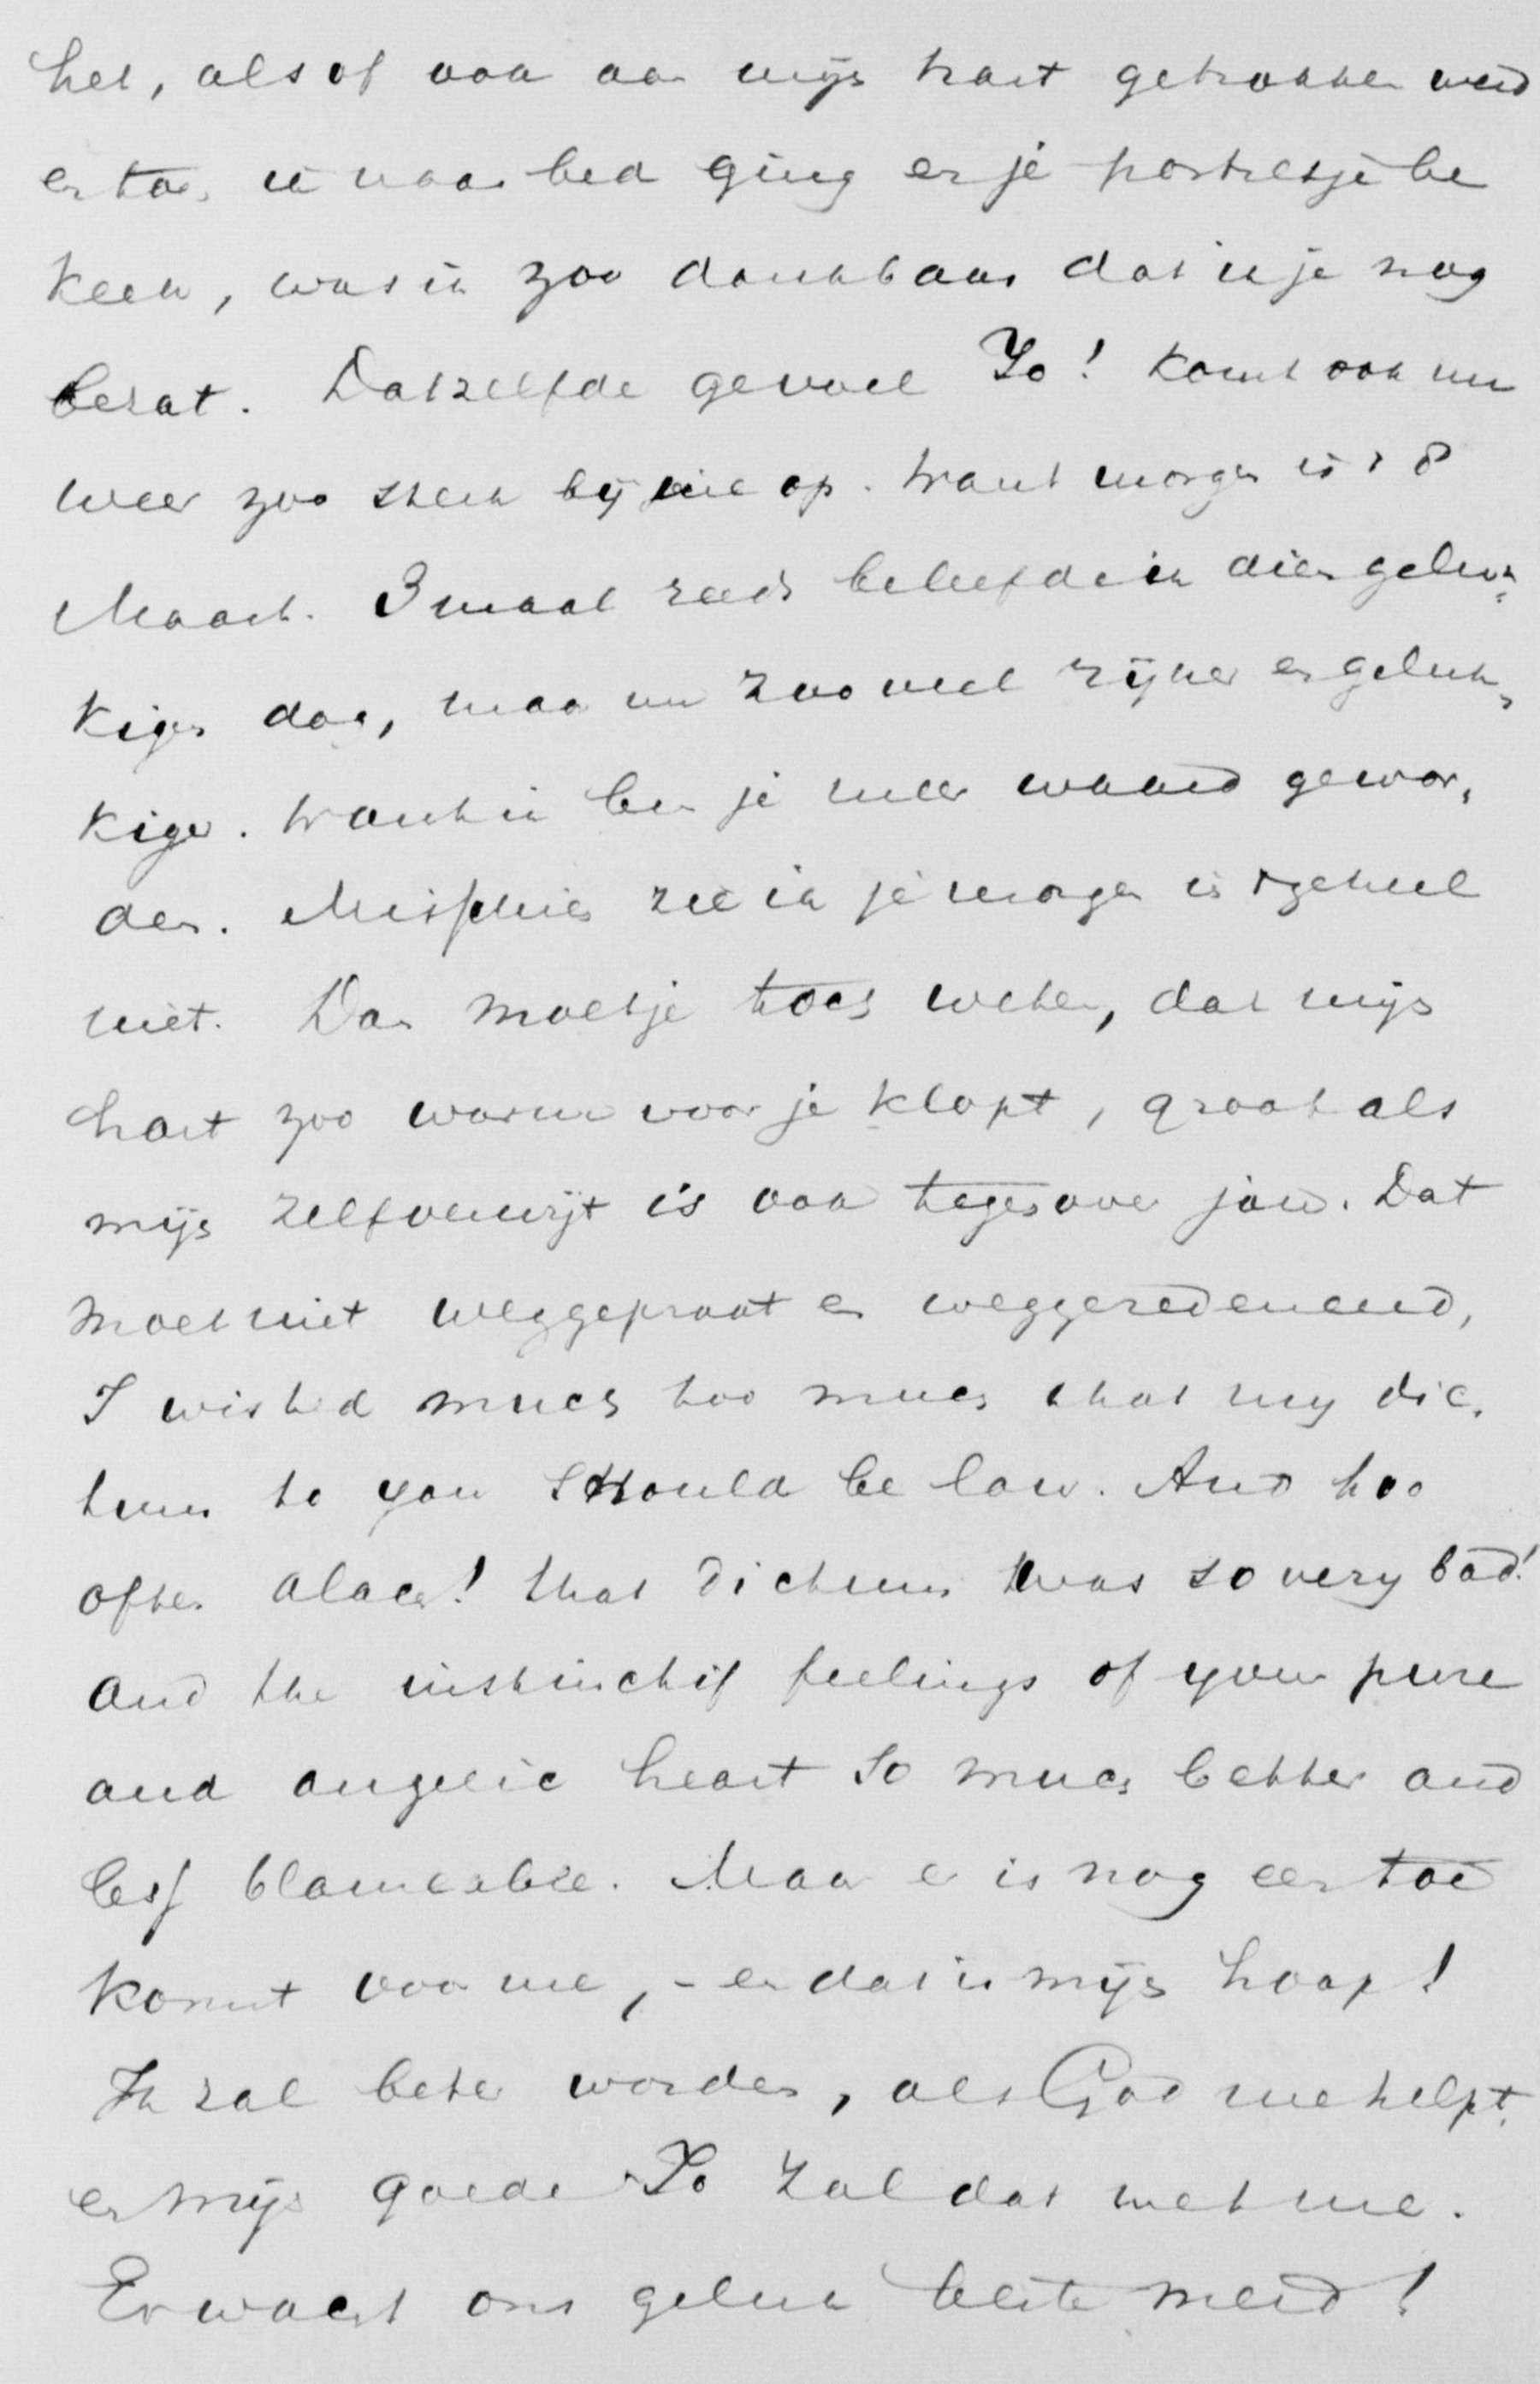 het, alsof ook aan mijn hart getrokken werd
en toen ik naar bed ging en je portretje be
keek, was ik zoo dankbaar dat ik je nog
bezat. Datzelfde gevoel Jo! komt ook nu
weer zoo sterk bij me op. Want morgen is 't 8
Maart. 3 maal reeds beleefde ik dien geluk=
kigen dag, maar nu zooveel rijker en geluk=
kiger. Want ik ben je meer waard gewor=
den. Misschien zie ik je morgen in 't geheel
niet. Dan moet je toch weten, dat mijn
hart zoo warm voor je klopt, groot als
mijn zelfverwijt is ook tegenover jou. Dat
moet niet weggepraat en weggeredeneerd,
I wished much too much that my dic=
tum to you should be law. And too
often alace! that dictum was so very bad!
and the instinctif feelings of your pure
and angelic heart so much better and
less blameable. Maar er is nog een toe
komst voor me, - en dat is mijn hoop!
Ik zal beter worden, als God me helpt,
en mijn goede Jo zal dat met me.
Er wacht ons geluk beste meid!